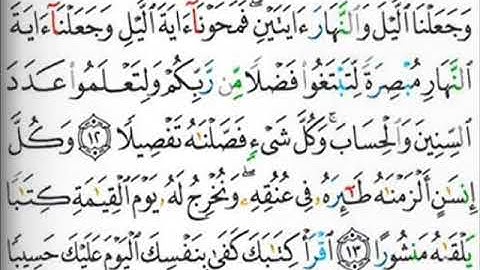 وَجَعَلْنَا ٱلَّيْلَ وَٱلنَّهَارَ ءَايَتَيْنِ ۖ فَمَحَوْنَآ ءَايَةَ ٱلَّيْلِ وَجَعَلْنَآ ءَايَةَ
ٱلنَّهَارِ مُبْصِرَةً لِّتَبْتَغُوا۟ فَضْلًا مِّن رَّبِّكُمْ وَلِتَعْلَمُوا۟ عَدَدَ
ٱلسِّنِينَ وَٱلْحِسَابَ ۚ وَكُلَّ شَىْءٍ فَصَّلْنَٰهُ تَفْصِيلًا ۝١٢ وَكُلَّ
إِنسَٰنٍ أَلْزَمْنَٰهُ طَٰٓئِرَهُۥ فِى عُنُقِهِۦ ۖ وَنُخْرِجُ لَهُۥ يَوْمَ ٱلْقِيَٰمَةِ كِتَٰبًا
يَلْقَىٰهُ مَنشُورًا ۝١٣ ٱقْرَأْ كِتَٰبَكَ كَفَىٰ بِنَفْسِكَ ٱلْيَوْمَ عَلَيْكَ حَسِيبًا